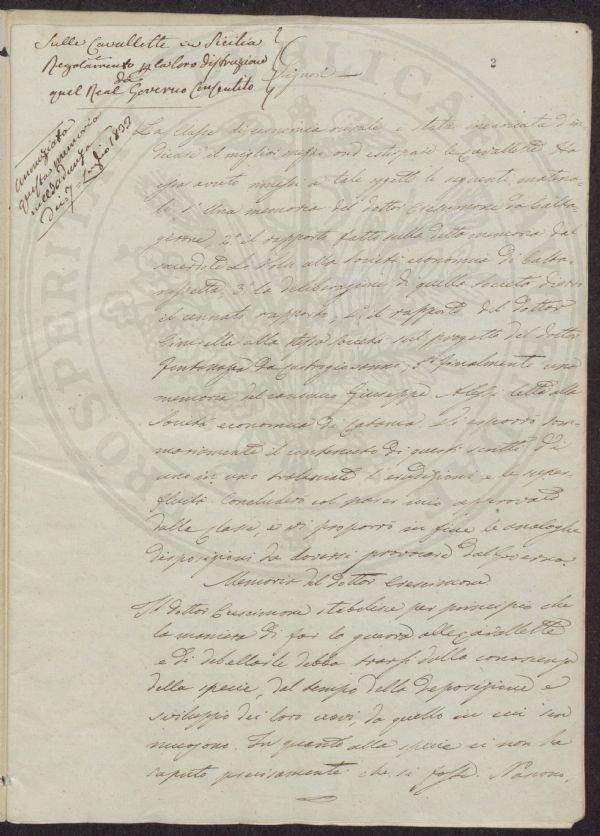 Sulle Cavallette in Sicilia
Regolamento p la loro distruzione
da
quel Real Governo
2
Signori
annunziata
questa memoria
La Classe di economia rurale è stata incaricata d'in
dicare il miglior mezzo ond'estirpare le Cavallette. Ha
essa avuto a tale oggetto le seguenti
1.° Una memoria del dottor Crescimone da Calta
girone, 2.° il rapporto fatto sulla detta memoria dal
sacerdote alla società economica di Calta
nissetta, 3.° la deliberazione di quella società dietro
il cennato rapporto, 4.° il rapporto del dottor
alla stessa società sul progetto del dottor
da Castrogiovanni, 5.° finalmente una
memoria del canonico Giuseppe Alessi letta alla
Società economica di Catania. Vi esporrò som
mariamente il contenuto di questi scritti di
uno in uno tralasciate l'erudizioni e le super
fluità. Concluderò col parer mio approvato
dalla Classe, e vi proporrò in fine le analoghe
disposizioni da doversi provocare dal Governo.
Memoria del dottor Crescimone
Il dottor Crescimone stabilisce per principio che
la maniera di far la guerra alle cavallette
e di debellarle debba trarsi dalla conoscenza
della specie, dal tempo della deposizione e
sviluppo dei loro uovi, da quello in cui si
muojono. In quanto alla specie ei non ha
saputo precisamente che si fosse. Nascono,
PROSPERITÀ PUBBLICA